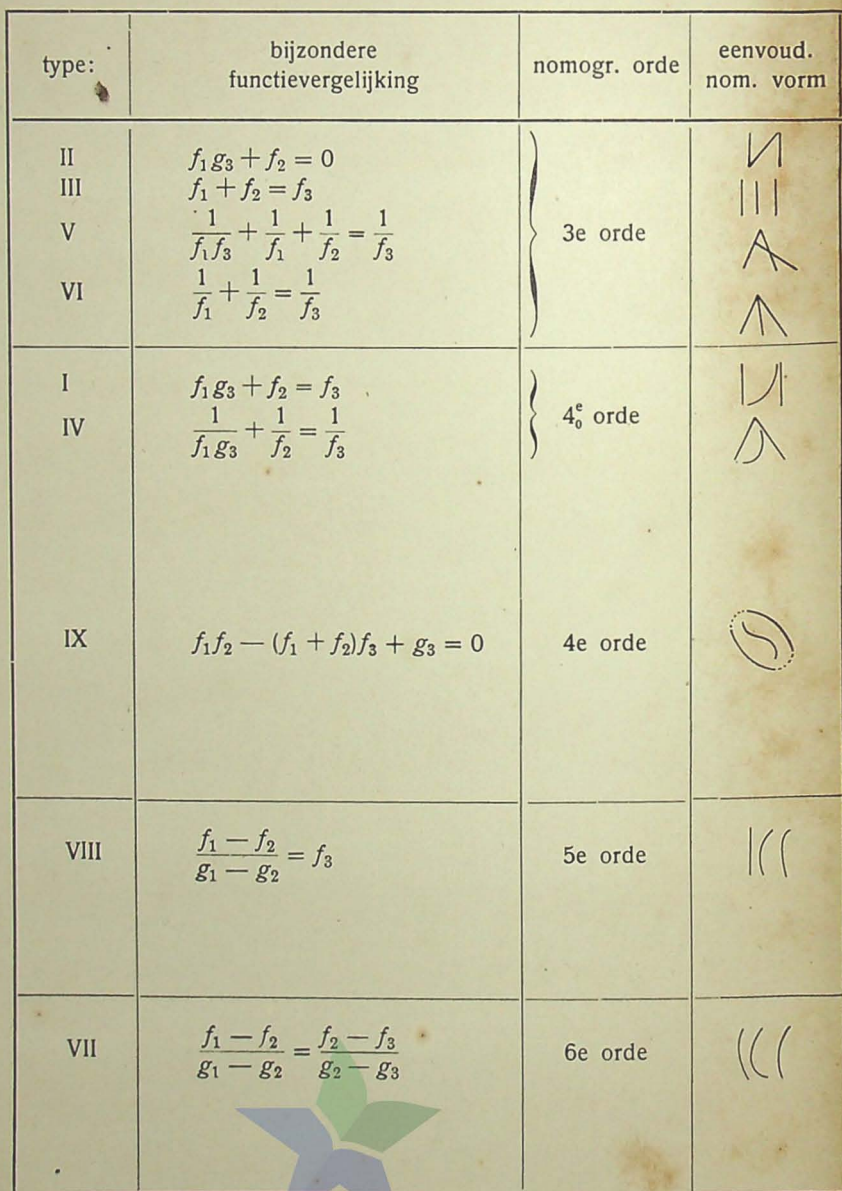 type: bijzondere functievergelijking nomogr. orde eenvoud. nom. vorm
II f₁g₃ + f₂ = 0
III f₁ + f₂ = f₃
V 1/(f₁f₃) + 1/f₁ + 1/f₂ = 1/f₃ 3e orde
VI 1/f₁ + 1/f₂ = 1/f₃
I f₁g₃ + f₂ = f₃
4₀ᵉ orde
IV 1/(f₁g₃) + 1/f₂ = 1/f₃
IX f₁f₂ — (f₁ + f₂)f₃ + g₃ = 0 4e orde
VIII (f₁ — f₂)/(g₁ — g₂) = f₃ 5e orde
VII (f₁ — f₂)/(g₁ — g₂) = (f₂ — f₃)/(g₂ — g₃) 6e orde